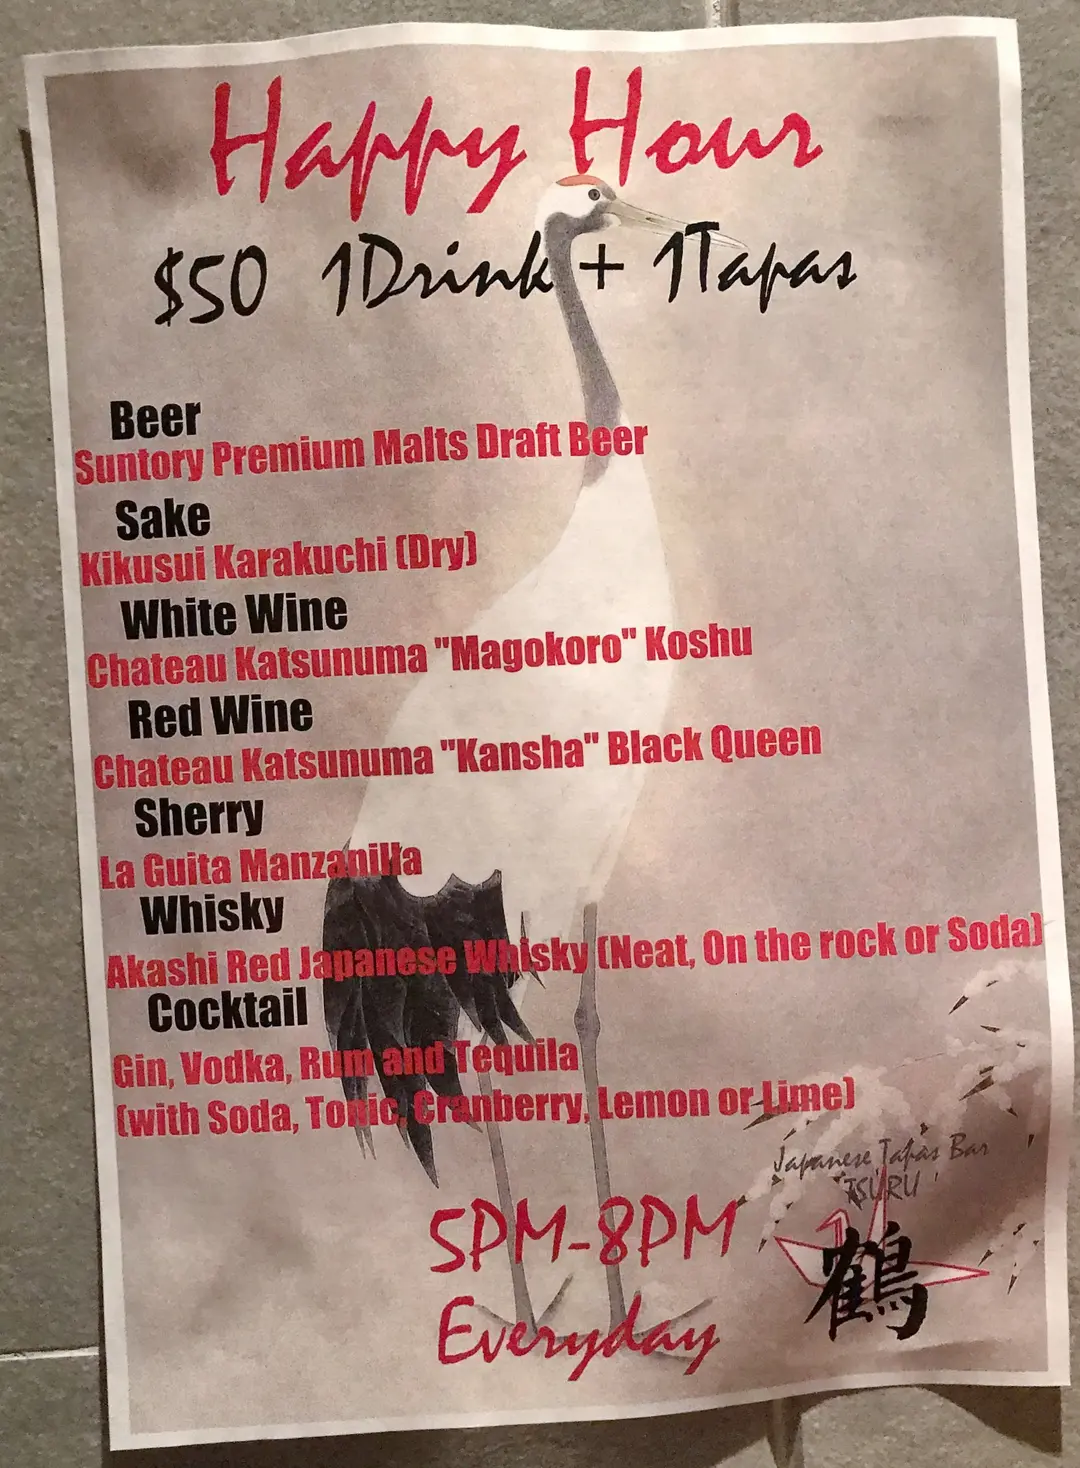 Happy Hour
$50 1Drink + 1Tapas
Beer
Suntory Premium Malts Draft Beer
Sake
Kikusui Karakuchi (Dry)
White Wine
Chateau Katsunuma "Magokoro" Koshu
Red Wine
Chateau Katsunuma "Kansha" Black Queen
Sherry
La Guita Manzanilla
Whisky
Akashi Red Japanese Whisky (Neat, On the rock or Soda)
Cocktail
Gin, Vodka, Rum and Tequila
(with Soda, Tonic, Cranberry, Lemon or Lime)
Japanese Tapas Bar
'TSURU'
鶴
5PM-8PM
Everyday